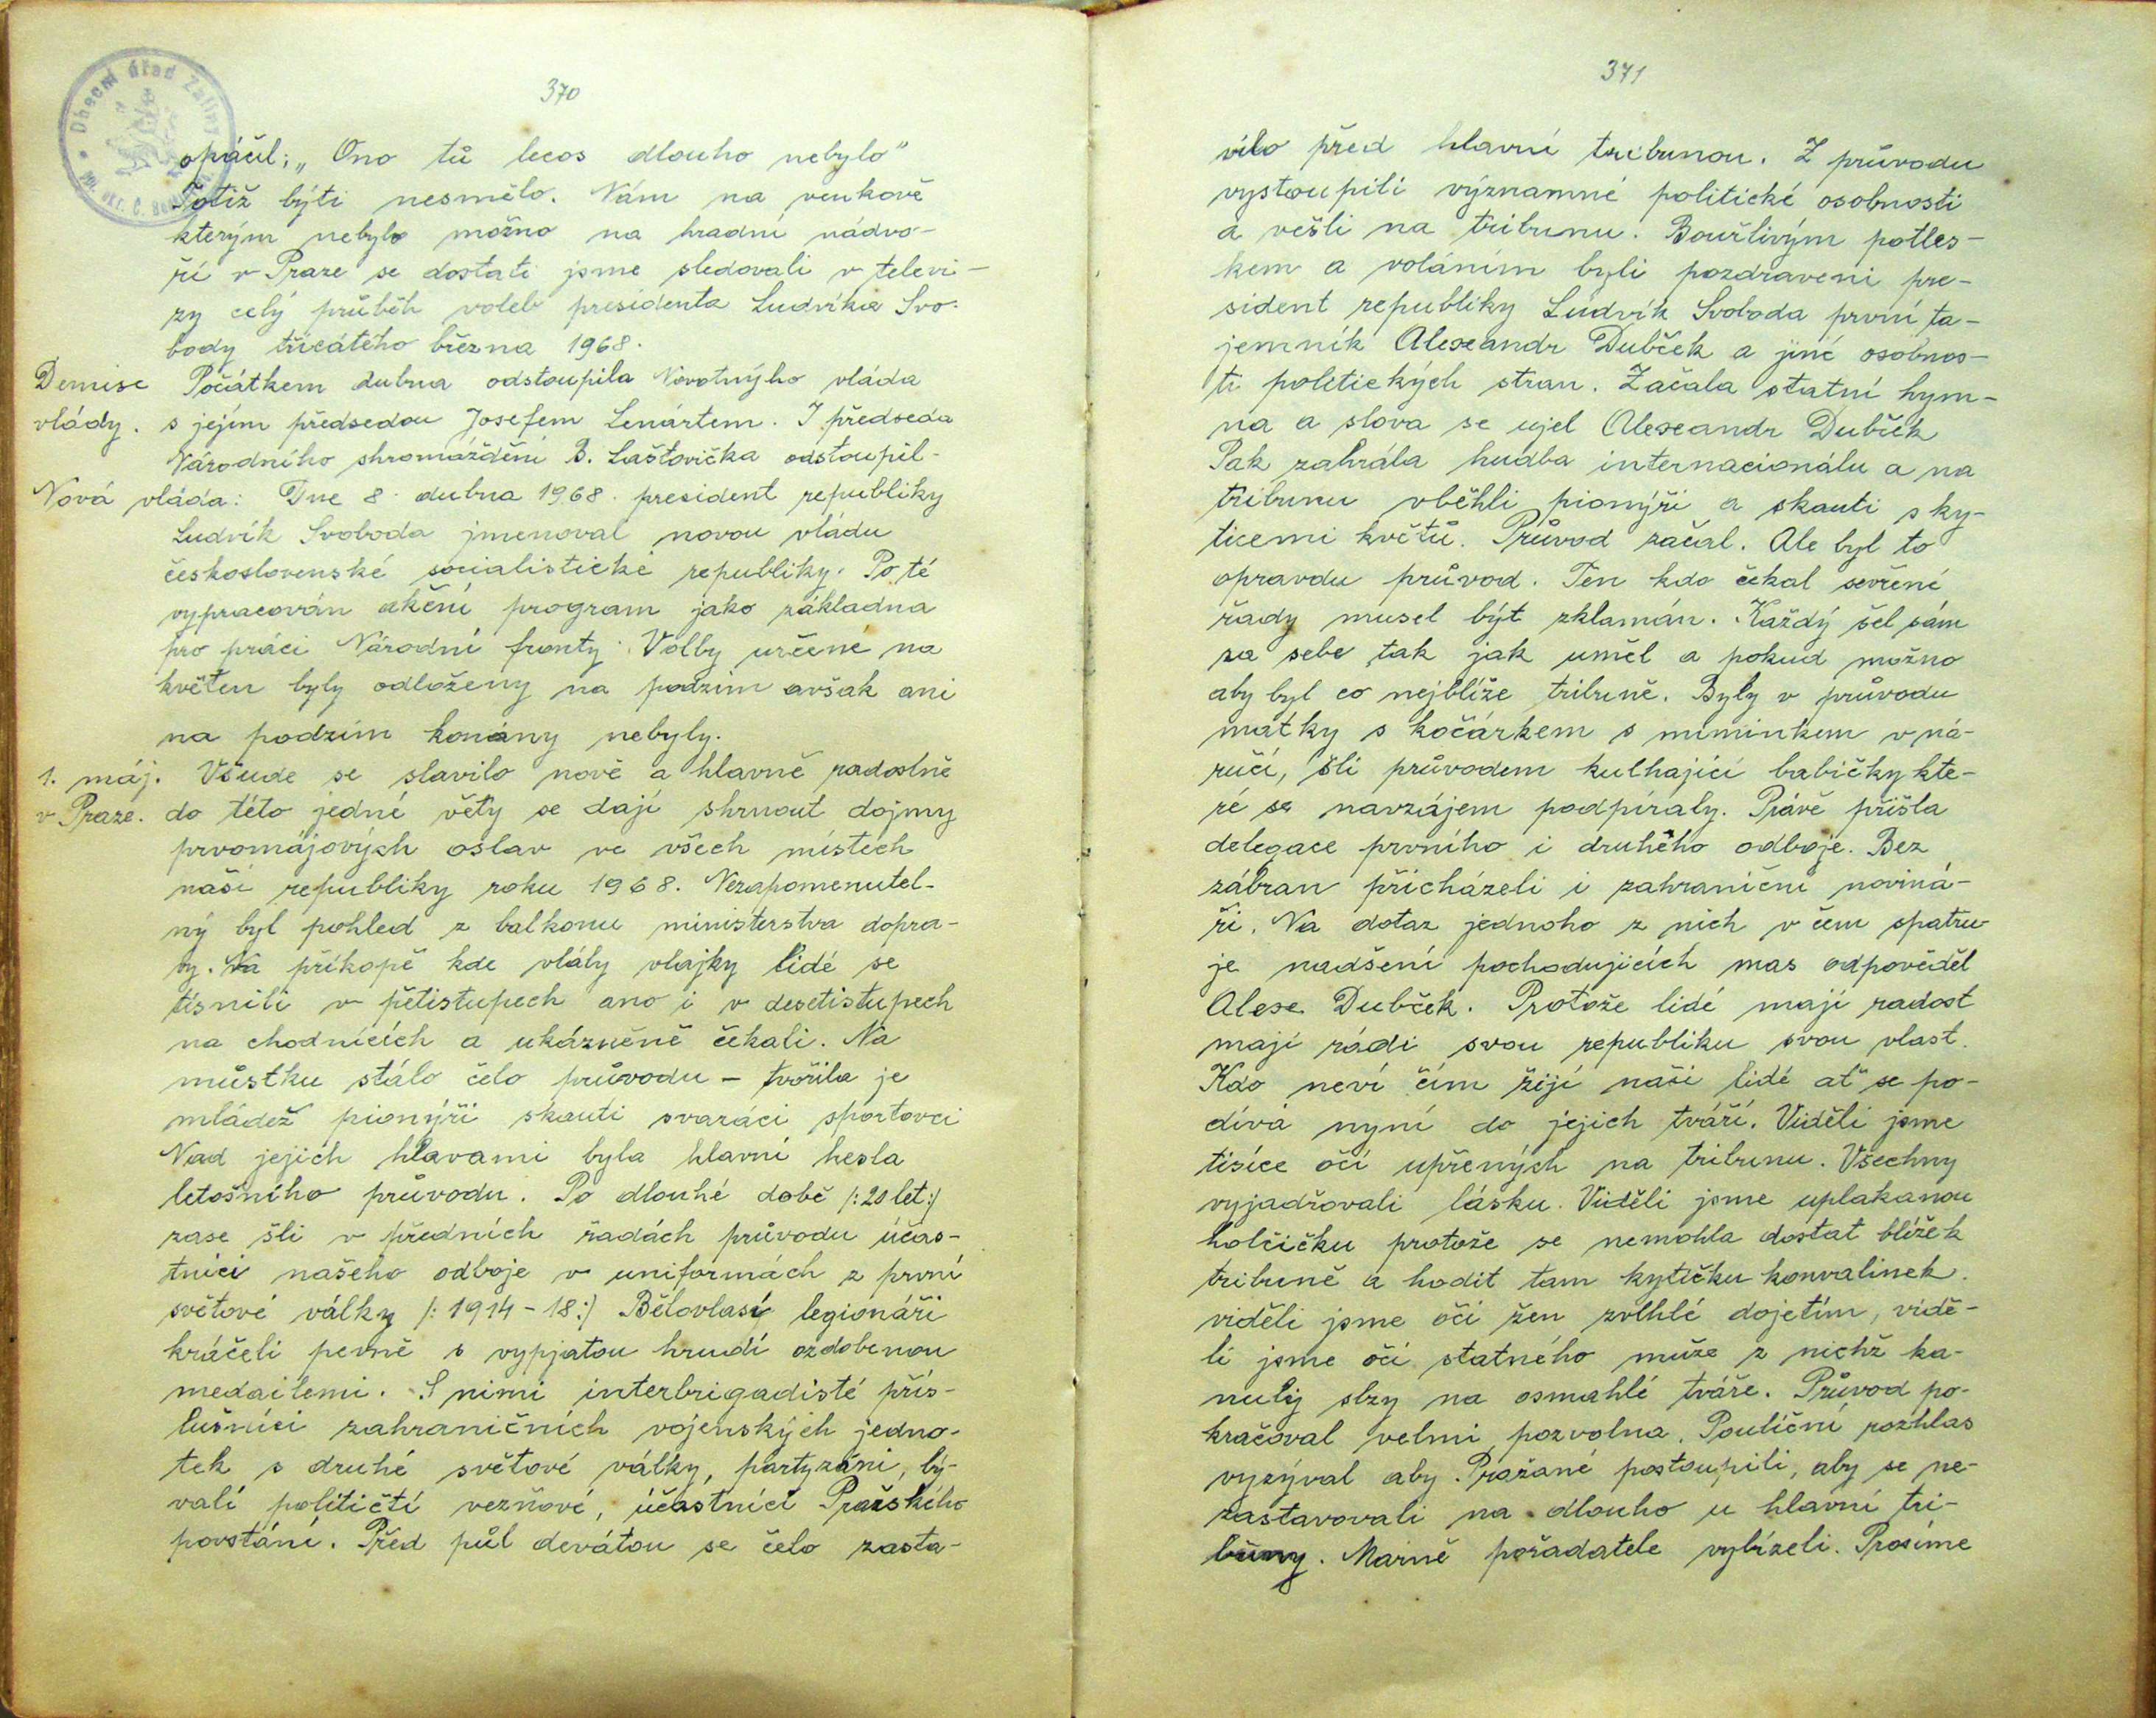 370
Obecní úřad Záliny
opáčil: „Ono tů lecos dlouho nebylo"
Totiž býti nesmělo. Nám na venkově
kterým nebylo možno na hradní nádvo-
ří v Praze se dostati jsme sledovali v televi-
zy celý průběh voleb presidenta Ludvíka Svo-
body třicátého března 1968.
Demise Počátkem dubna odstoupila Novotnýho vláda
vlády. s jejím předsedou Josefem Lenártem. I předseda
Národního shromáždění B. Laštovička odstoupil.
Nová vláda: Dne 8. dubna 1968. president republiky
Ludvík Svoboda jmenoval novou vládu
československé socialistické republiky. Po té
vypracován akční program jako základna
pro práci Národní fronty. Volby určené na
květen byly odloženy na podzim avšak ani
na podzim konány nebyly.
1. máj. Všude se slavilo nově a hlavně radostně
v Praze. do této jedné věty se dají shrnout dojmy
prvomájových oslav ve všech místech
naší republiky roku 1968. Nezapomenutel-
ný byl pohled z balkonu ministerstva dopra-
vy. Na příkopě kde vlály vlajky lidé se
tísnili v pětistupech ano i v desetistupech
na chodnících a ukázněně čekali. Na
můstku stálo čelo průvodu – tvořila je
mládež pionýři skauti svazáci sportovci
Nad jejich hlavami byla hlavní hesla
letošního průvodu. Po dlouhé době /: 20 let :/
zase šli v předních řadách průvodu účas-
tníci našeho odboje v uniformách z první
světové války /: 1914 - 18 :/ Bělovlasí legionáři
kráčeli pevně s vypjatou hrudí ozdobenou
medailemi. S nimi interbrigadisté přís-
lušníci zahraničních vojenských jedno-
tek s druhé světové války, partyzáni, bý-
valí političtí vezňové, účastníci Pražského
povstání. Před půl devátou se čelo zasta-
371
vilo před hlavní tribunou. Z průvodu
vystoupili významné politické osobnosti
a vešli na tribunu. Bouřlivým potles-
kem a voláním byli pozdraveni pre-
sident republiky Ludvík Svoboda první ta-
jemník Alexandr Dubček a jiné osobnos-
ti politických stran. Začala statní hym-
na a slova se ujel Alexandr Dubček
Pak zahrála hudba internacionálu a na
tribunu vběhli pionýři a skauti s ky-
ticemi květů. Průvod začal. Ale byl to
opravdu průvod. Ten kdo čekal sevřené
řady musel být zklamán. Každý šel sám
za sebe tak jak uměl a pokud možno
aby byl co nejblíže tribuně. Byly v průvodu
matky s kočárkem s miminkem v ná-
ručí, šli průvodem kulhající babičky kte-
ré se navzájem podpíraly. Právě přišla
delegace prvního i druhého odboje. Bez
zábran přicházeli i zahraniční noviná-
ři. Na dotaz jednoho z nich v čem spatřu-
je nadšení pochodujících mas odpověděl
Alex. Dubček. Protože lidé mají radost
mají rádi svou republiku svou vlast.
Kdo neví čím žijí naši lidé ať se po-
dívá nyní do jejich tváří. Viděli jsme
tisíce očí upřených na tribunu. Všechny
vyjadřovali lásku. Viděli jsme uplakanou
holčičku protože se nemohla dostat blíže k
tribuně a hodit tam kytičku konvalinek.
viděli jsme oči žen zvlhlé dojetím, vidě-
li jsme oči statného muže z nichž ka-
nuly slzy na osmahlé tváře. Průvod po-
kračoval velmi pozvolna. Pouliční rozhlas
vyzýval aby Pražané postoupili, aby se ne-
zastavovali na dlouho u hlavní tri-
buny. Marně pořadatele vybízeli. Prosíme